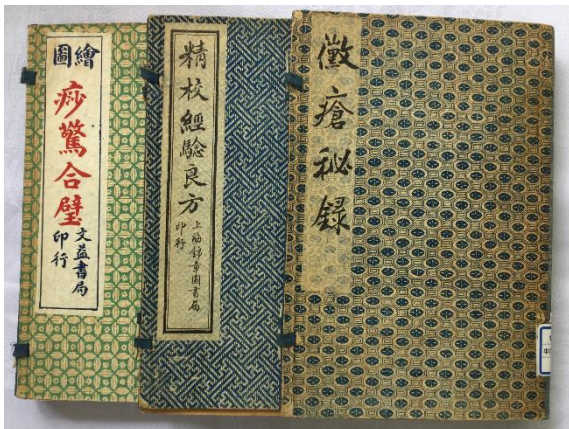 繪圖
痧驚合璧
文益書局
印行
精校經驗良方
上海錦章圖書局
印行
黴瘡秘録